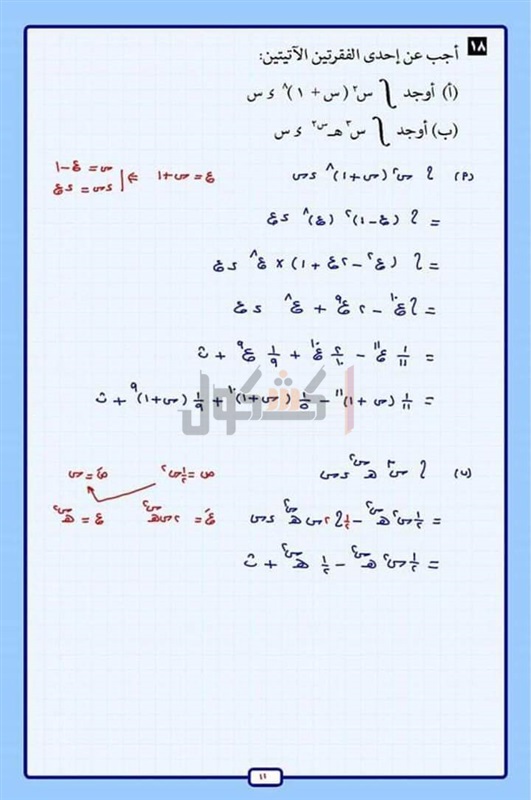 ١٨ أجب عن إحدى الفقرتين الآتيتين:
(أ) أوجد ∫ س٢ (س + ١)^٨ ء س
(ب) أوجد ∫ س٣ هـ^س٢ ء س
(٢) ∫ س٢ (س+١)^٨ ءس ع = س+١ ⇐ س = ع-١ ءس = ءع
= ∫ (ع-١)^٢ (ع)^٨ ءع
= ∫ (ع^٢ - ٢ع + ١) × ع^٨ ءع
= ∫ ع^١٠ - ٢ع^٩ + ع^٨ ءع
= ١/١١ ع^١١ - ٢/١٠ ع^١٠ + ١/٩ ع^٩ + ث
= ١/١١ (س+١)^١١ - ١/٥ (س+١)^١٠ + ١/٩ (س+١)^٩ + ث
كشكول
(ب) ∫ س^٣ هـ^س٢ ءس ص = ١/٢ س^٢ صَ = س
= ١/٢ س^٢ هـ^س٢ - ١/٢ ∫ ٢س هـ^س٢ ءس عَ = ٢س هـ^س٢ ع = هـ^س٢
= ١/٢ س^٢ هـ^س٢ - ١/٢ هـ^س٢ + ث
١١